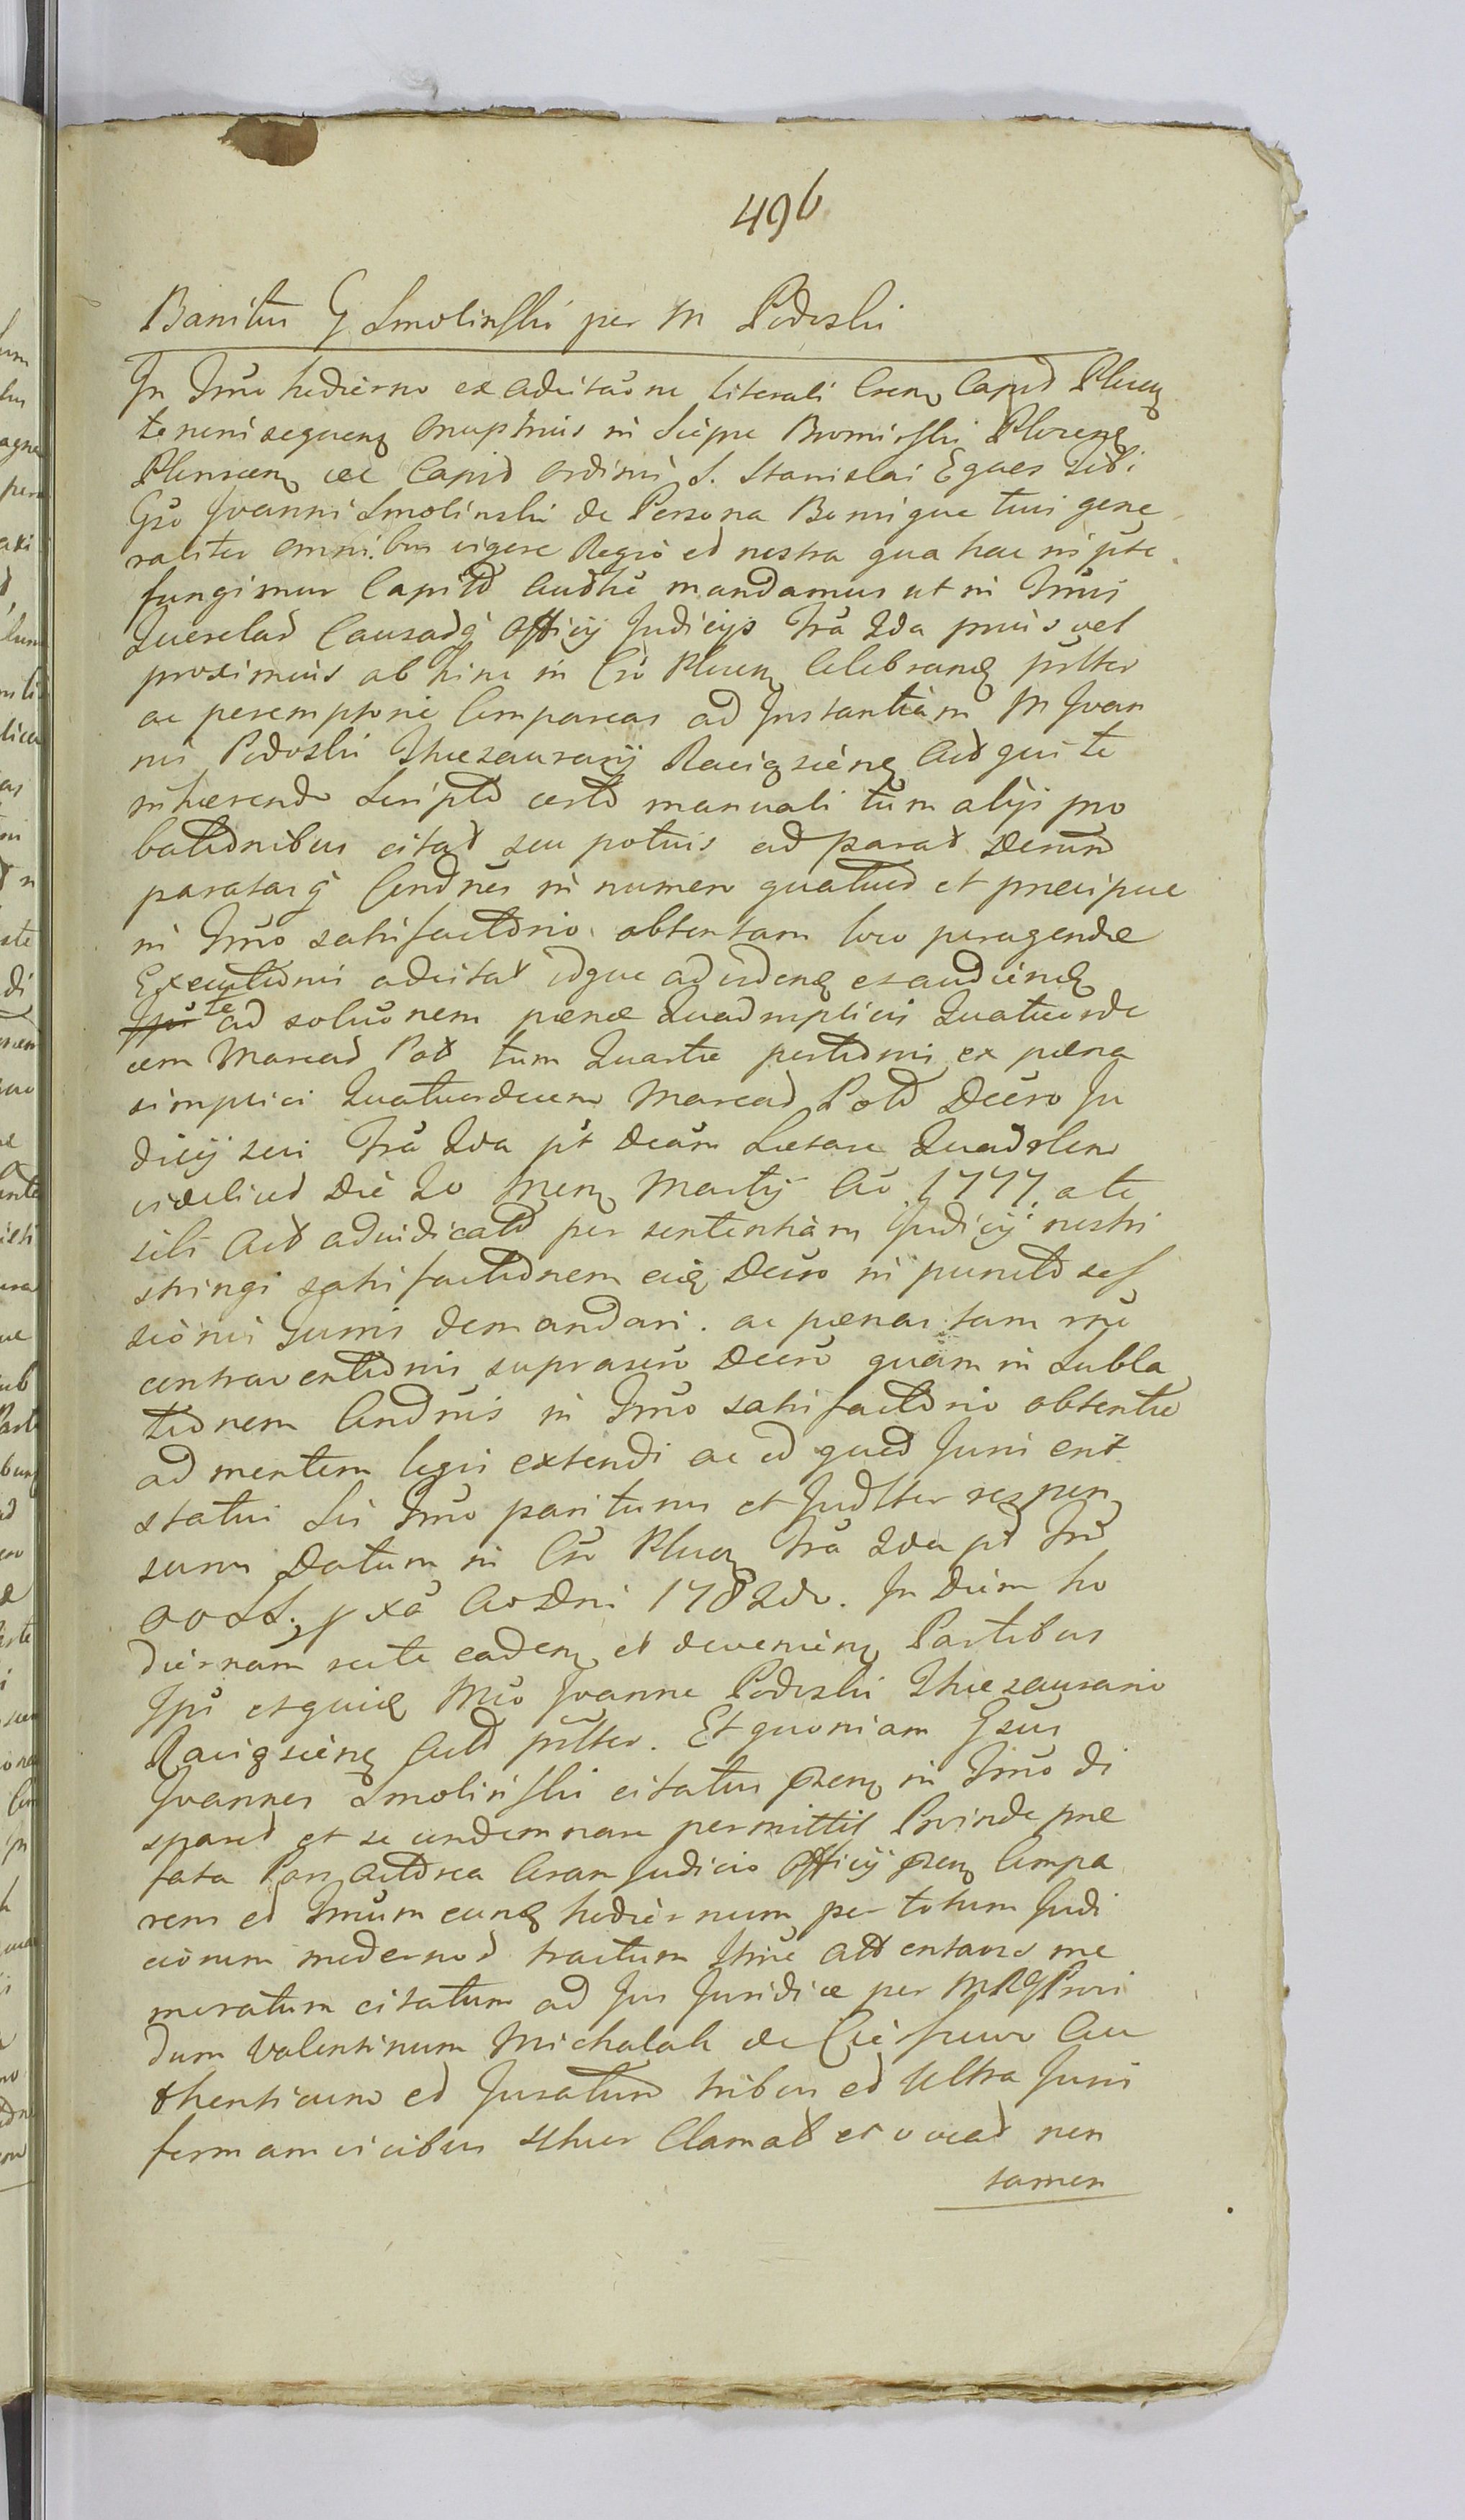 496
Banitus G Smolinski per M Podoski
In Tmo hodierno ex Adcitaõne literali Crem Capit Plocen
tenoris sequen Onuphrius in Siepre Bromirski Plocen
Plonscen ae Capit Ordinis S. Stanislai Eques Tibi
Gso Joanni Smolinski de Persona Bonisque tuis gene
raliter omnibus vigore Regia et nostra qua hac in pte
fungimur Capitli Authe mandamus ut in Tmis
Querelas Causasq Officij Judicijs Fra 2da prius vel
proximius ab hinc in Cro Plocen Celebran psllter
ac peremptorie Compareas ad Instantiam M Joan
nis Podoski Thesaurarij Raciązienen Act qui te
inhaerendo Scripto certo manuali tum alijs pro
bationibus citat seu potius ad parat Decum
paratasq Condnes in numero quatuor et praecipue
in Tmo satisfactorio obtentam loco peragendae
Executionis adcitat idque ad viden et audien
te ad soluõnem paenae Quadruplicis Quatuorde
cem Marcas Pol tum Quartae portionis ex paena
simplici Quatuordecem Marcas Pol Decro Ju
dicij sui Fra 2da pt Dcam Laetare Quadrlem
videlicet Die 20 Mens Martij Ao 1777 a te
sibi Act adiudicat per sententiam Judicij nostri
stringi satisfactionem eid Decro in puncto ses
sionis Juris demandari. ac paenas tam rne
contraventionis suprascro Decro quam in Subla
tionem Condnis in Tmo satisfactorio obtentae
ad mentem legis extendi ac id quod Juris erit
statui Sis Tmo pariturus et Judlter respon
surus Datum in Cro Plocen Fra 2da pt Fm
OOSS. pxa Ao Dni 1782do. In Diem ho
diernam recte caden et devenien Partibus
Ipi etquid Mco Joanne Podoski Thesaurario
Raciązienen Act psllter. Et quoniam Gsus
Joannes Smolinski citatus paen in Tmo di
sparet et se condemnare permittit Proinde prae
fata Pars Actorea Coram Judicio Officij paen Compa
rens et Tmum eund hodiernum per totum Judi
ciorum modernor tractum Tme attentans me
moratum citatum ad Jus Juridice per MRG Provi
dum Valentinum Michalak de Ciechowo Au
thenticum et Juratum tribus et Ultra Juris
formam vicibus Ulter Clamat et vocat non
tamen